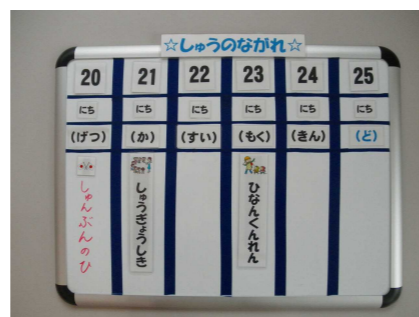 ☆しゅうのながれ☆
20 21 22 23 24 25
にち にち にち にち にち にち
(げつ) (か) (すい) (もく) (きん) (ど)
しゅんぶんのひ
しゅうぎょうしき
ひなんくんれん